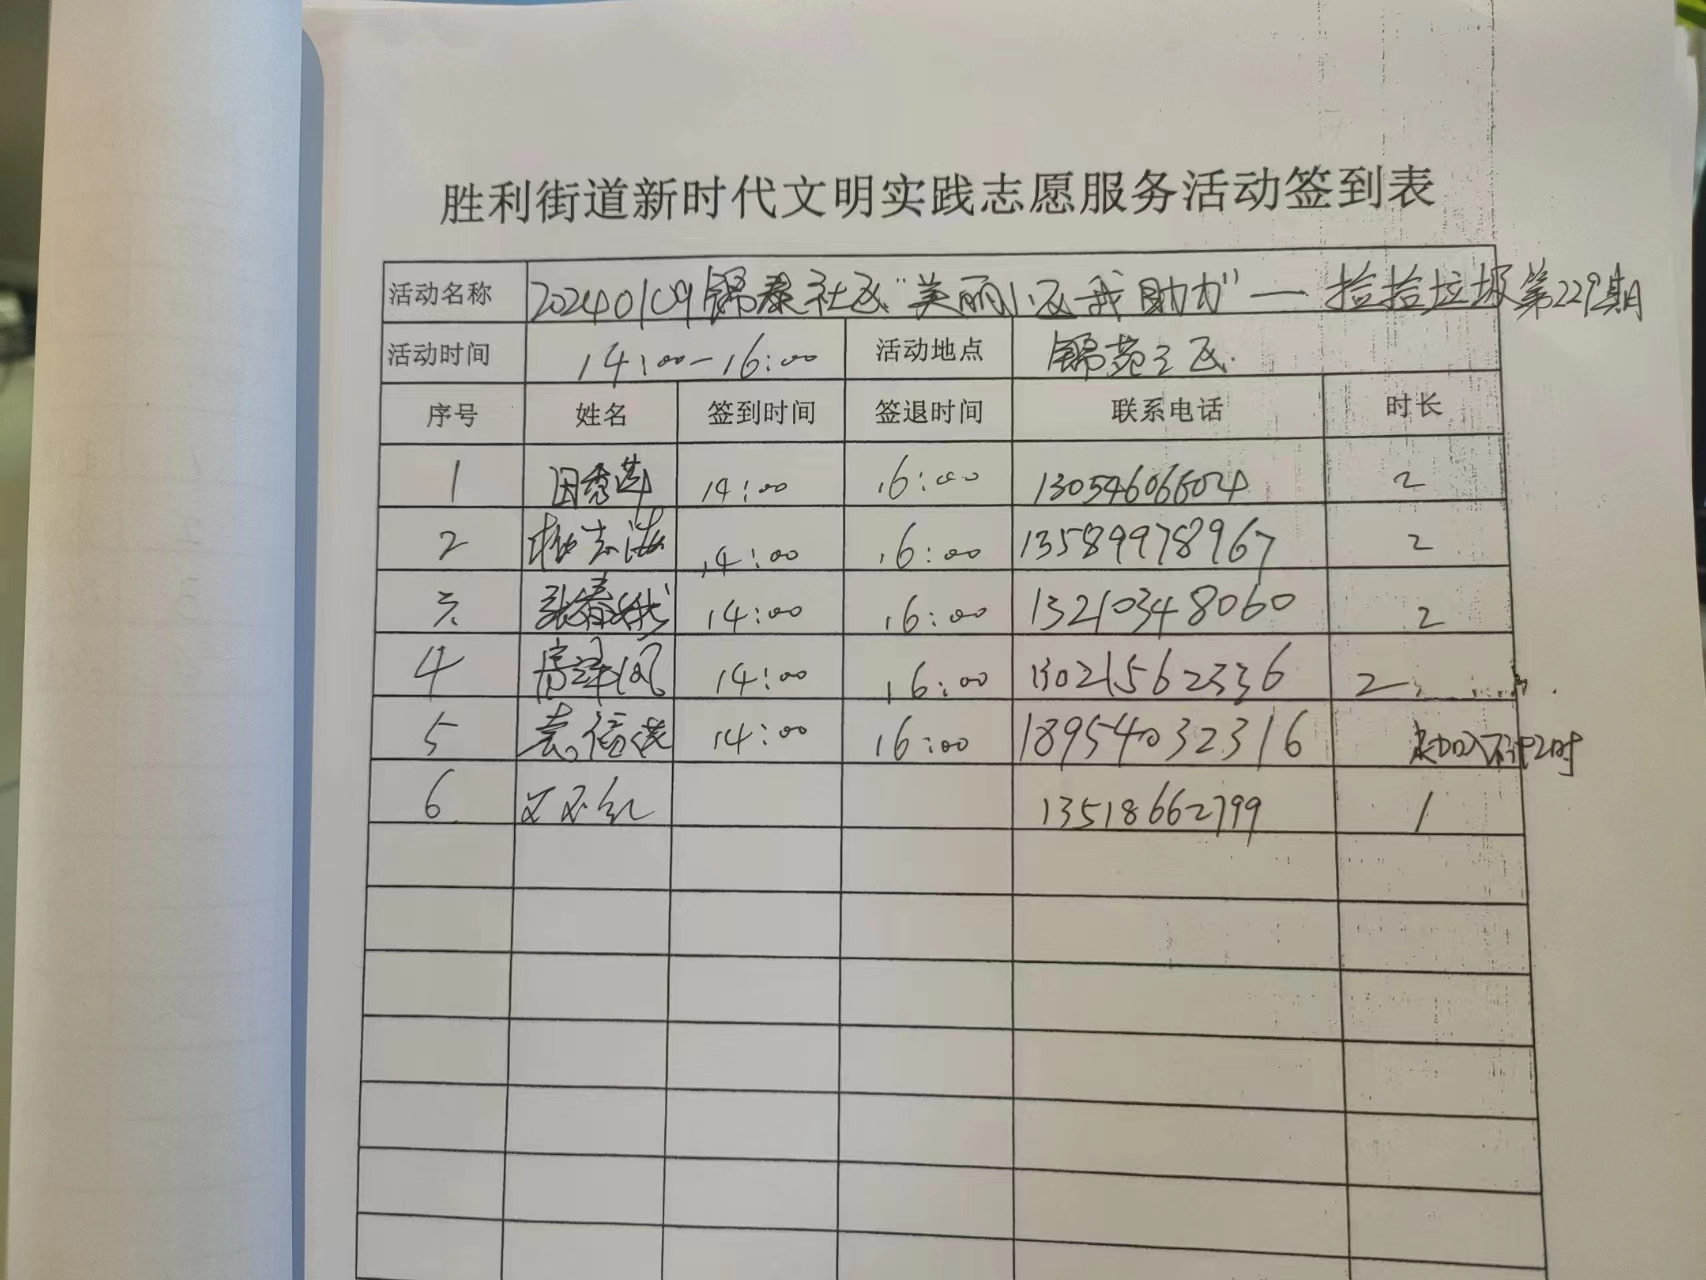 胜利街道新时代文明实践志愿服务活动签到表
活动名称 20240109锦泰社区“美丽小区我助力”—捡拾垃圾第229期
活动时间 14:00-16:00 活动地点 锦苑三区
序号 姓名 签到时间 签退时间 联系电话 时长
1 田秀莲 14:00 16:00 13054606602 2
2 杨志海 14:00 16:00 13589978967 2
3 张春娥 14:00 16:00 13210348060 2
4 14:00 16:00 13021562336 2
5 袁信 14:00 16:00 18954032316 未加入不计2时
6 红 13518662799 1